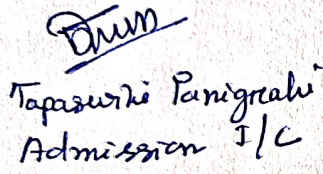 Tapaswini Panigrahi
Admission I/C